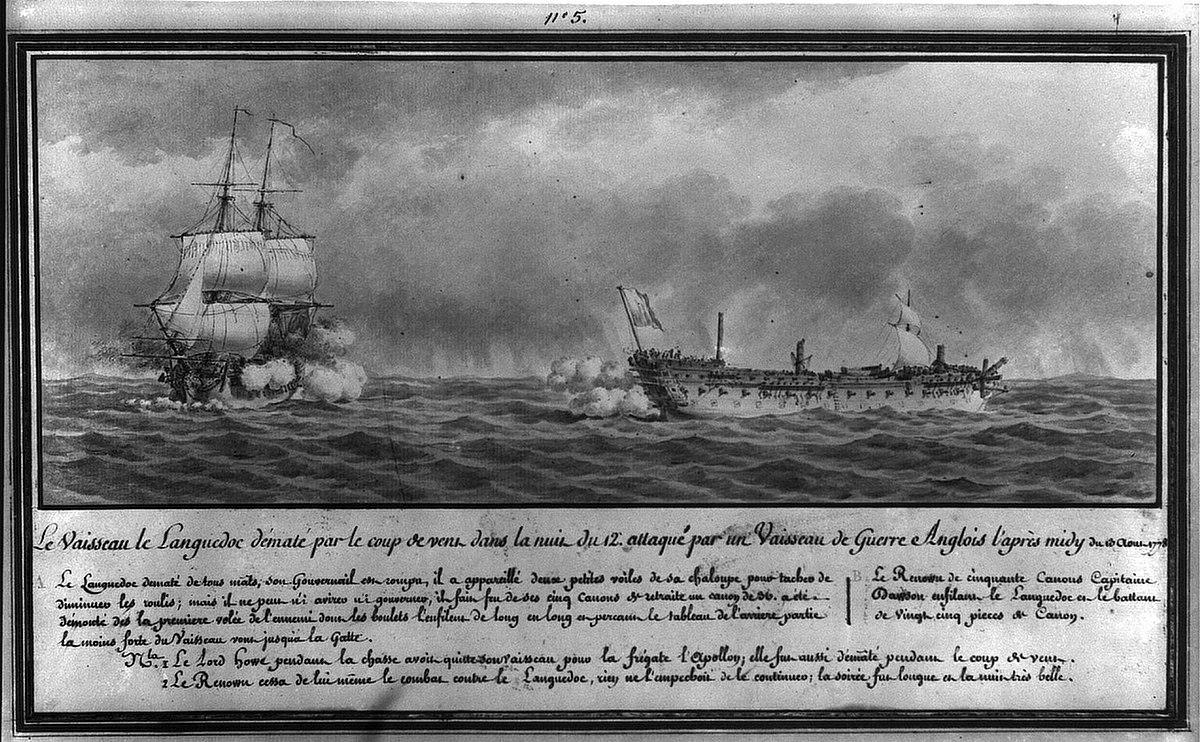 n.º 5.
Le Vaisseau le Languedoc dématé par le coup de vent dans la nuit du 12. attaqué par un Vaisseau de Guerre Anglois l'après midy du 13 Aout 1778
A Le Languedoc dematé de tous mats, son Gouvernail est rompu, il a appareillé deux petites voiles de sa chaloupe pour tacher de
diminuer les roulis; mais il ne peut n'i avirer n'i gouverner, il fait feu de ses cinq Canons de retraite un canon de 36. a été
demonté des la premiere volée de l'ennemi dont les boulets l'enfilent de long en long en percant le tableau de l'arriere partie
la moins forte du Vaisseau vont jusqua la Gatte.
B Le Renown de cinquante Canons Capitaine
Dawson enfilant le Languedoc et le battant
de Vingt cinq pieces de Canon.
Nta. 1 Le Lord Howe pendant la chasse avoit quitté son Vaisseau pour la frégate l'Apollon; elle fut aussi dématé pendant le coup de vent.
2 Le Renown cessa de lui même le combat contre le Languedoc, rien ne l'empechoit de le continuer; la soirée fut longue et la nuit très belle.